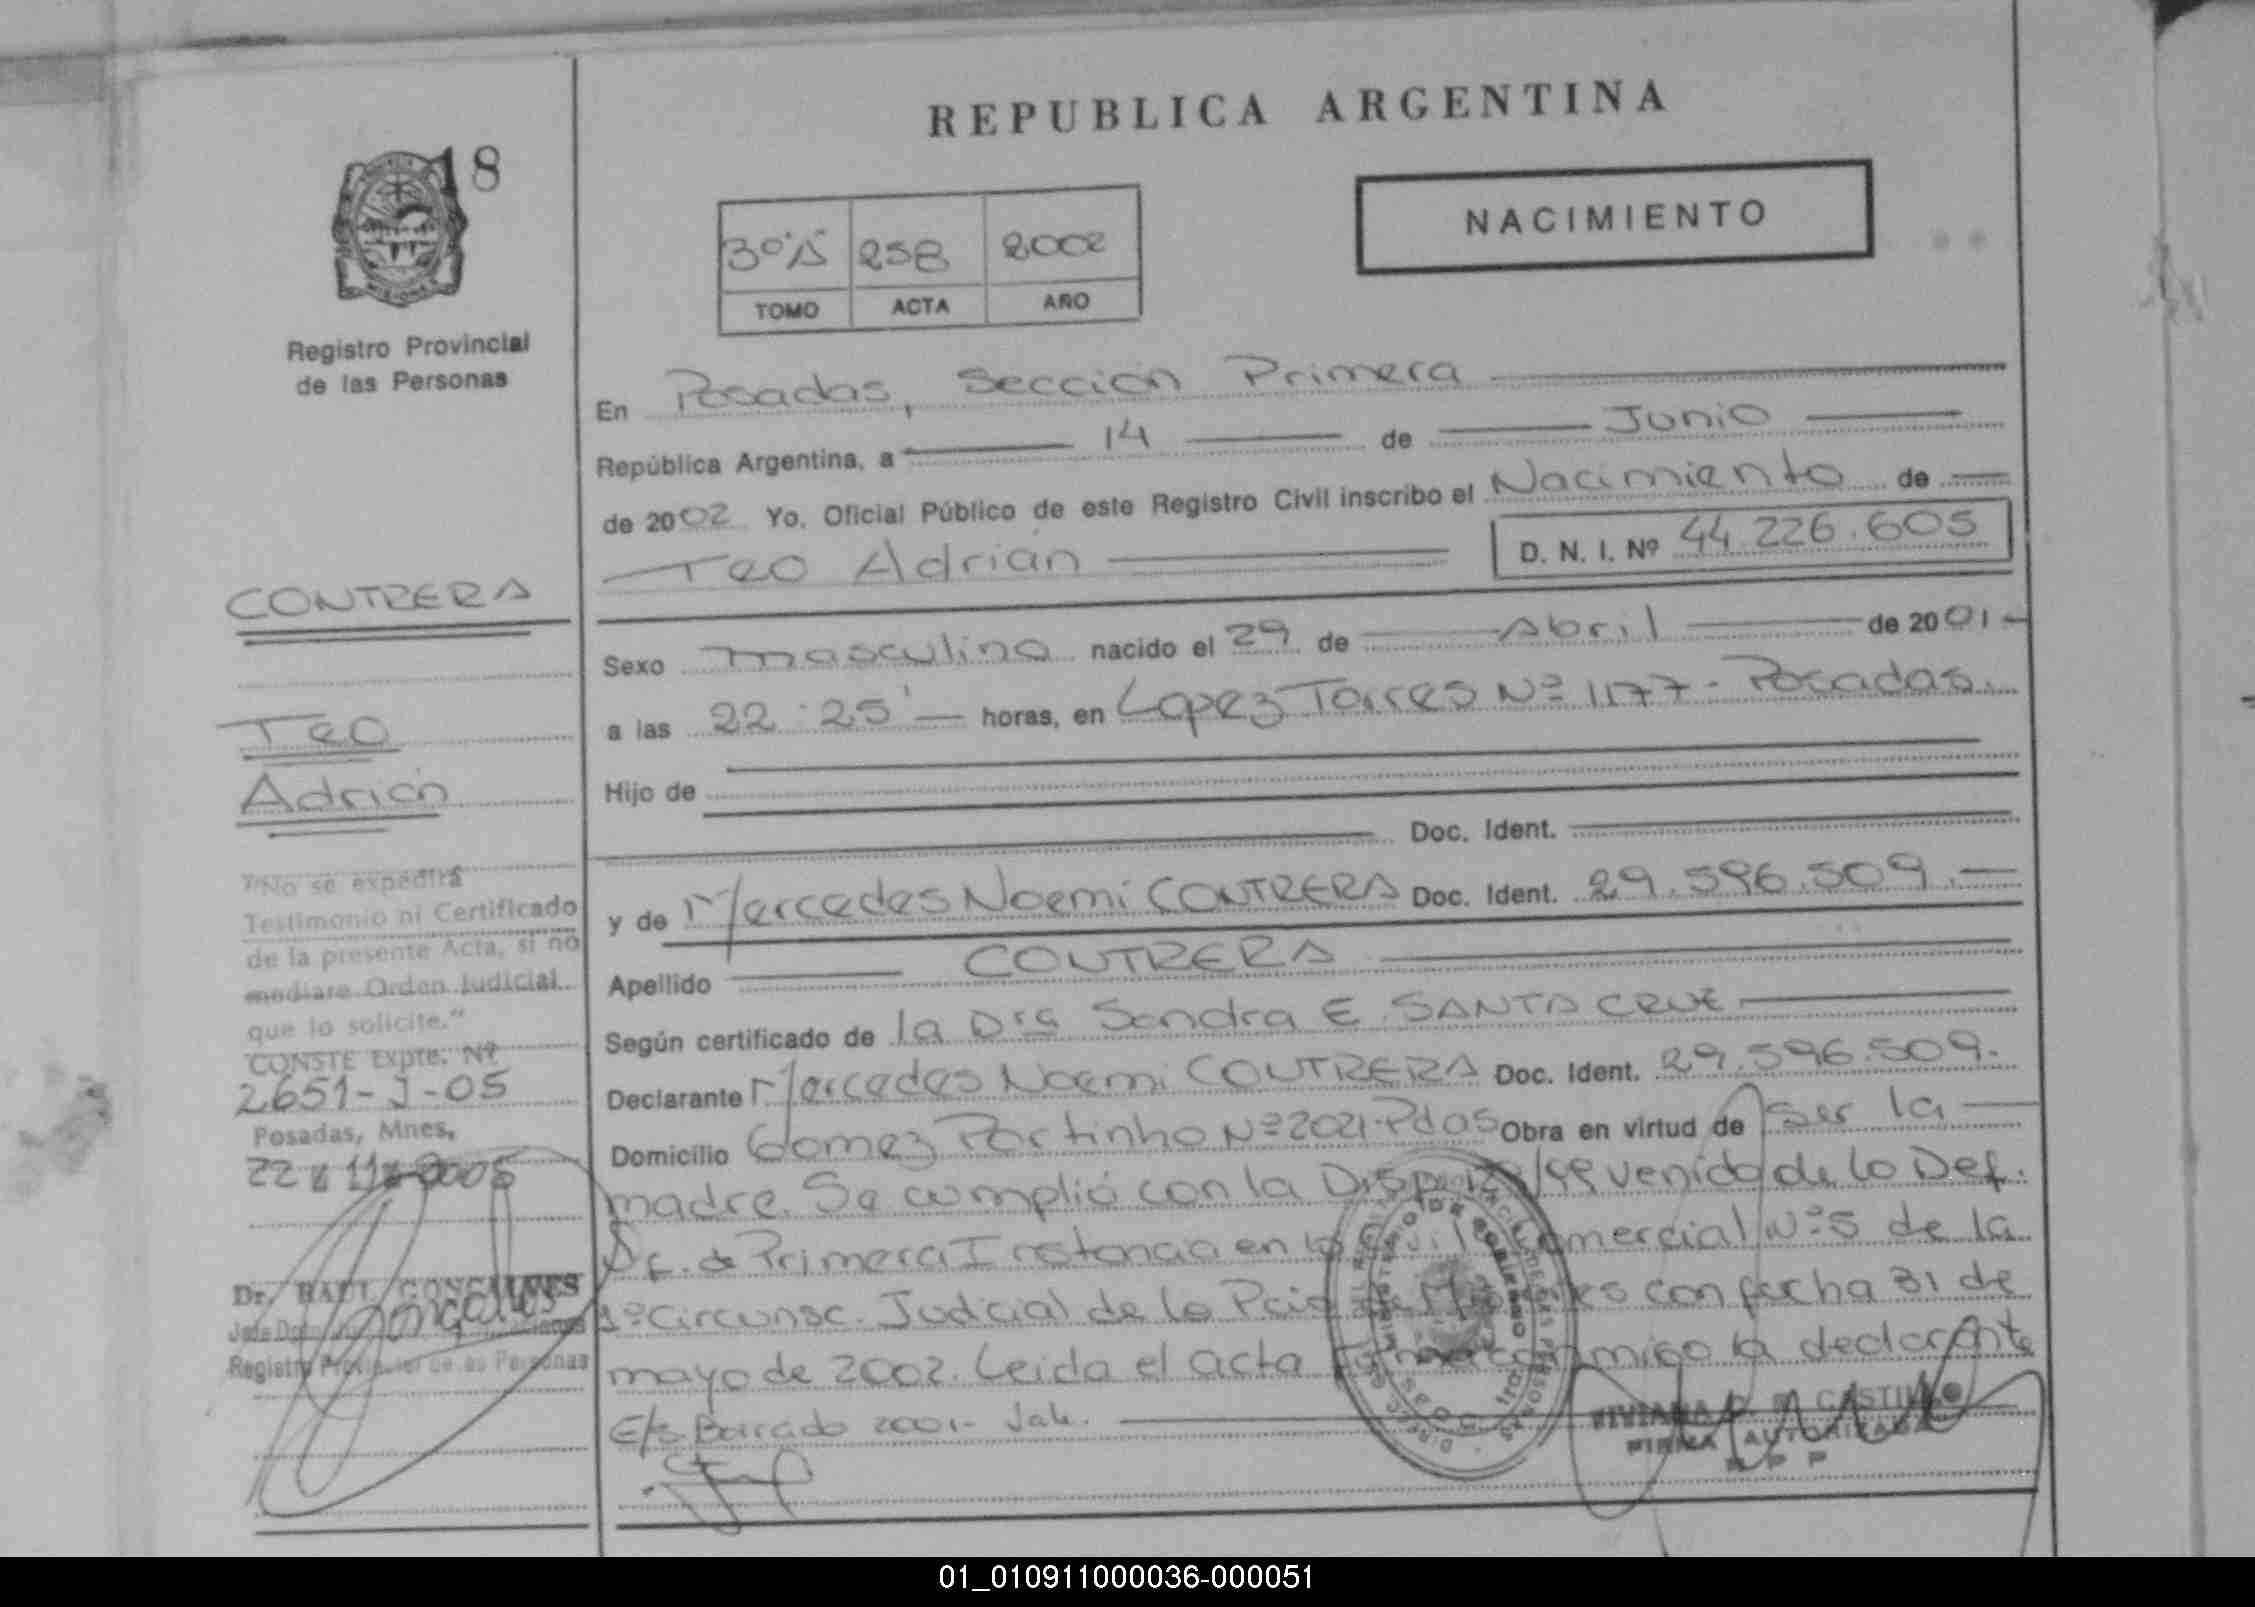 REPUBLICA ARGENTINA
18
NACIMIENTO
3º"A" 258 2002
TOMO ACTA AÑO
Registro Provincial
de las Personas
En Posadas, Sección Primera
República Argentina, a 14 de Junio
de 2002 Yo, Oficial Público de este Registro Civil inscribo el Nacimiento de
Teo Adrián D. N. I. Nº 44.226.605
CONTRERA
Teo
Adrián
Sexo masculino nacido el 29 de Abril de 2001
a las 22:25' horas, en Lopez Torres Nº 1177 - Posadas.
Hijo de
Doc. Ident.
y de Mercedes Noemi CONTRERA Doc. Ident. 29.596.509.
Apellido CONTRERA
Según certificado de la Dra Sandra E. SANTA CRUZ
Declarante Mercedes Noemi CONTRERA Doc. Ident. 29.596.509.
Domicilio Gomez Portinho Nº 2021-Pdas Obra en virtud de ser la
madre. Se cumplió con la Disp. venido de la Def.
de Primera Instancia en lo Civil Comercial Nº 5 de la
1º Circunsc. Judicial de la Pcia de Misiones con fecha 31 de
mayo de 2002. Leida el acta firma conmigo la declarante
E/s Borrado 2001- Vale.
"No se expedirá
Testimonio ni Certificado
de la presente Acta, si no
mediare Orden Judicial
que lo solicite."
CONSTE Expte. Nº
2651-J-05
Posadas, Mnes,
22 11 2005
Dr. RAUL GONCALVES
Registro Provincial de las Personas
VIVIANA CASTILLO
FIRMA AUTORIZADA
R P P
01_010911000036-000051